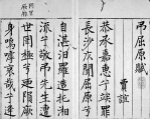 吊屈原賦
賈誼
恭承嘉惠兮竢罪
長沙仄聞屈原兮
自湛汨羅造托湘
流兮敬吊先生遭
世罔極兮迺隕厥
身嗚虖哀哉兮逢